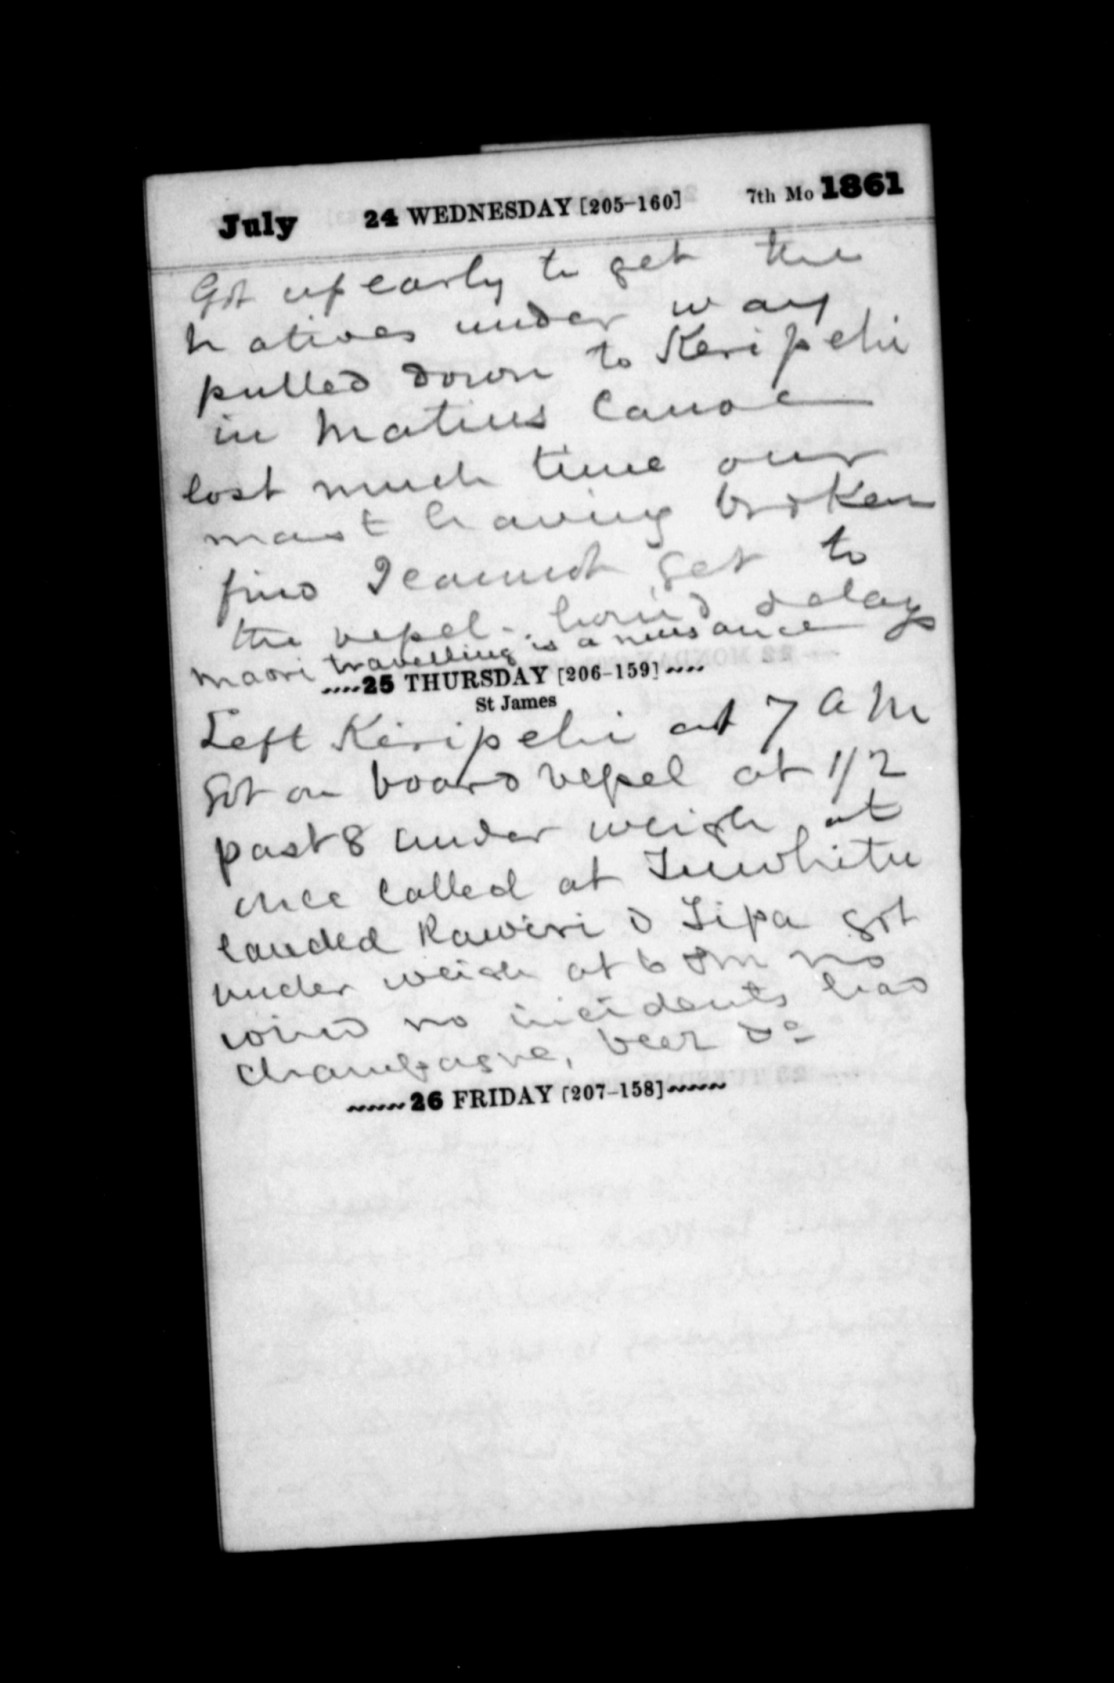 July 24 WEDNESDAY [205-160] 7th Mo 1861
Got up early to get the
natives under way
pulled down to Keripehi
in Matius Canoe
lost much time our
mast having broken
find I cannot get to
the vessel - horrid delays
maori travelling is a nuisance
25 THURSDAY [206-159]
St James
Left Keripehi at 7 A M
Got on board vessel at 1/2
past 8 under weigh at
once called at Tuwhitu
landed Rawiri & Tipa got
under weigh at 6 PM no
wind no incidents had
Champagne, beer &c
26 FRIDAY [207-158]